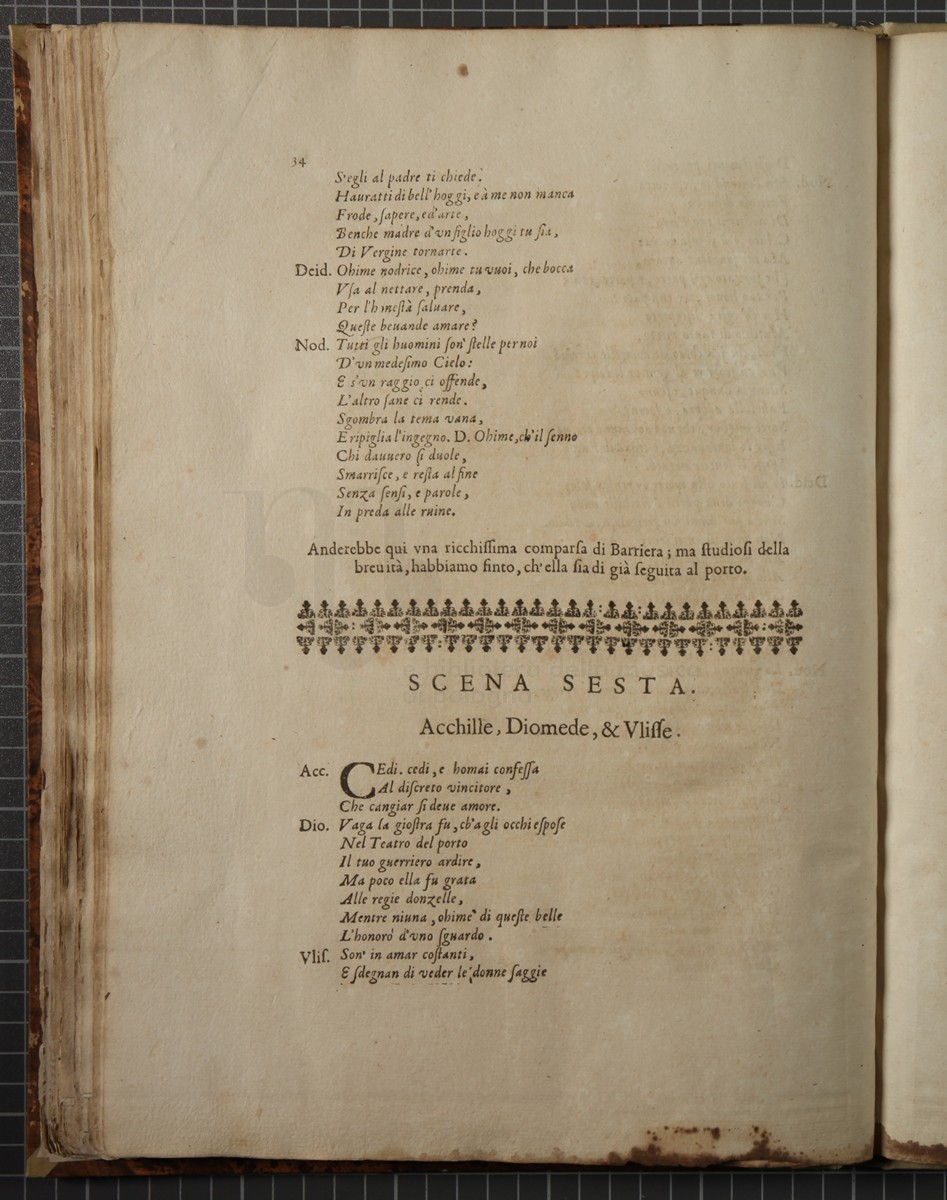 34
S'egli al padre ti chiede.
Hauratti di bell' hoggi, e à me non manca
Frode, ſapere, ed'arte,
Benche madre d'vn figlio hoggi tu ſia,
Di Vergine tornarte.
Deid. Ohime nodrice, ohime tu vuoi, che bocca
Vſa al nettare, prenda,
Per l'honeſtà ſaluare,
Queſte beuande amare?
Nod. Tutti gli huomini ſon' ſtelle per noi
D'vn medeſimo Cielo:
E s'vn raggio ci offende,
L'altro ſane ci rende.
Sgombra la tema vana,
E ripiglia l'ingegno. D. Ohime, ch'il ſenno
Chi dauuero ſi duole,
Smarriſce, e reſta al fine
Senza ſenſi, e parole,
In preda alle ruine.
Anderebbe qui vna ricchiſſima comparſa di Barriera; ma ſtudioſi della
breuità, habbiamo finto, ch' ella ſia di già ſeguita al porto.
SCENA SESTA.
Acchille, Diomede, & Vliſſe.
Acc. CEdi. cedi, e homai confeſſa
Al diſcreto vincitore,
Che cangiar ſi deue amore.
Dio. Vaga la gioſtra fu, ch'agli occhi eſpoſe
Nel Teatro del porto
Il tuo guerriero ardire,
Ma poco ella fu grata
Alle regie donzelle,
Mentre niuna, ohime' di queſte belle
L'honorò d'vno ſguardo.
Vliſ. Son' in amar coſtanti,
E ſdegnan di veder le donne ſaggie